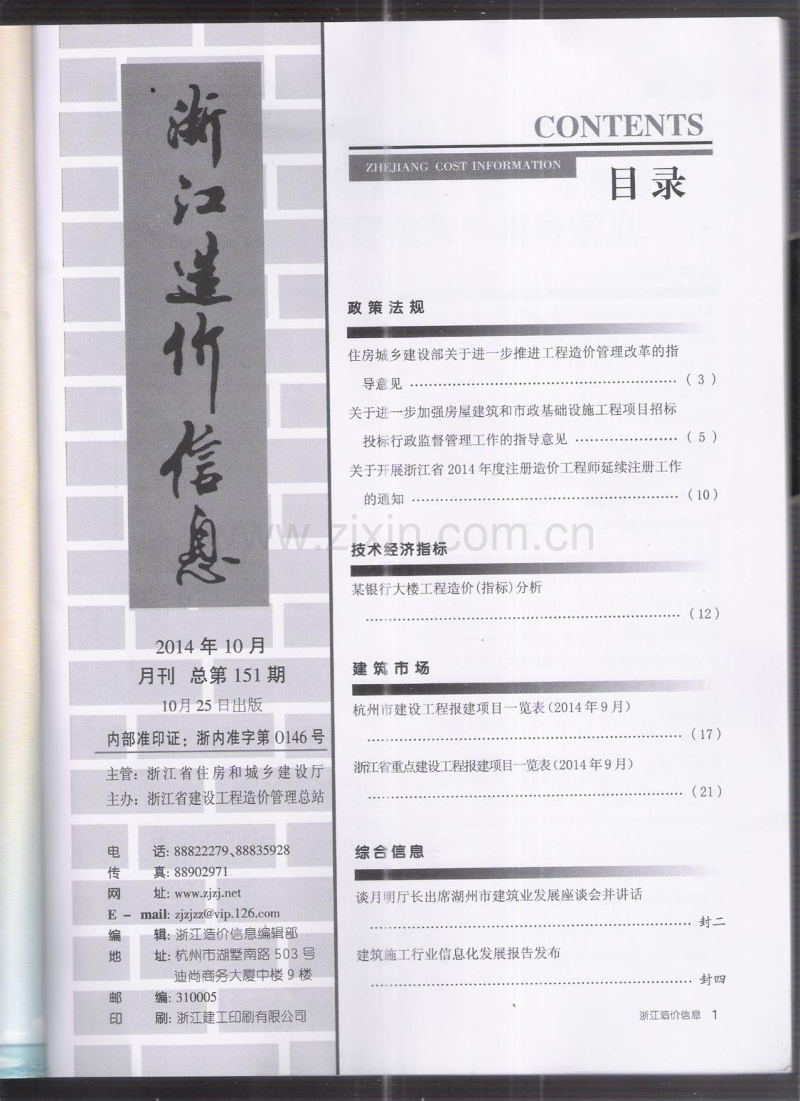 浙江造价信息
2014年10月
月刊 总第151期
10月25日出版
内部准印证：浙内准字第0146号
主管：浙江省住房和城乡建设厅
主办：浙江省建设工程造价管理总站
电 话：88822279、88835928
传 真：88902971
网 址：www.zjzj.net
E-mail：zjzjzz@vip.126.com
编 辑：浙江造价信息编辑部
地 址：杭州市湖墅南路503号
迪尚商务大厦中楼9楼
邮 编：310005
印 刷：浙江建工印刷有限公司
CONTENTS
ZHEJIANG COST INFORMATION
目录
政策法规
住房城乡建设部关于进一步推进工程造价管理改革的指
导意见 ……………………………………… (3)
关于进一步加强房屋建筑和市政基础设施工程项目招标
投标行政监督管理工作的指导意见 ……………… (5)
关于开展浙江省2014年度注册造价工程师延续注册工作
的通知 ……………………………………… (10)
技术经济指标
某银行大楼工程造价(指标)分析
……………………………………………… (12)
建筑市场
杭州市建设工程报建项目一览表(2014年9月)
……………………………………………… (17)
浙江省重点建设工程报建项目一览表(2014年9月)
……………………………………………… (21)
综合信息
谈月明厅长出席湖州市建筑业发展座谈会并讲话
……………………………………………… 封二
建筑施工行业信息化发展报告发布
……………………………………………… 封四
浙江造价信息 1
www.zixin.com.cn